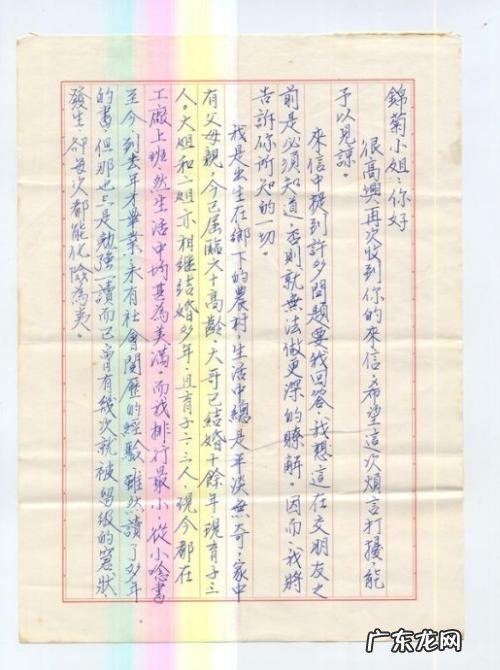 錦菊小姐:你好
很高興再次收到你的來信,希望這次煩言打擾,能
予以見諒。
來信中提到許多問題要我回答,我想這在交朋友之
前是必須知道,否則就無法做更深的瞭解。因而,我將
告訴你所知的一切。
我是出生在鄉下的農村,生活中總是平淡無奇,家中
有父母親,今已屆臨六十高齡,大哥已結婚十餘年現育子三
人。大姐和二姐亦相繼結婚多年,且育子二、三人,現今都在
工廠上班,然生活中均甚為美滿。而我排行最小,從小唸書
至今到去年才畢業,未有社會閱歷的經驗,雖然讀了多年
的書,但那也只是勉強讀而已,曾有幾次就被留級的窘狀,
發生,卻每次都能化險為夷。
广东龙网